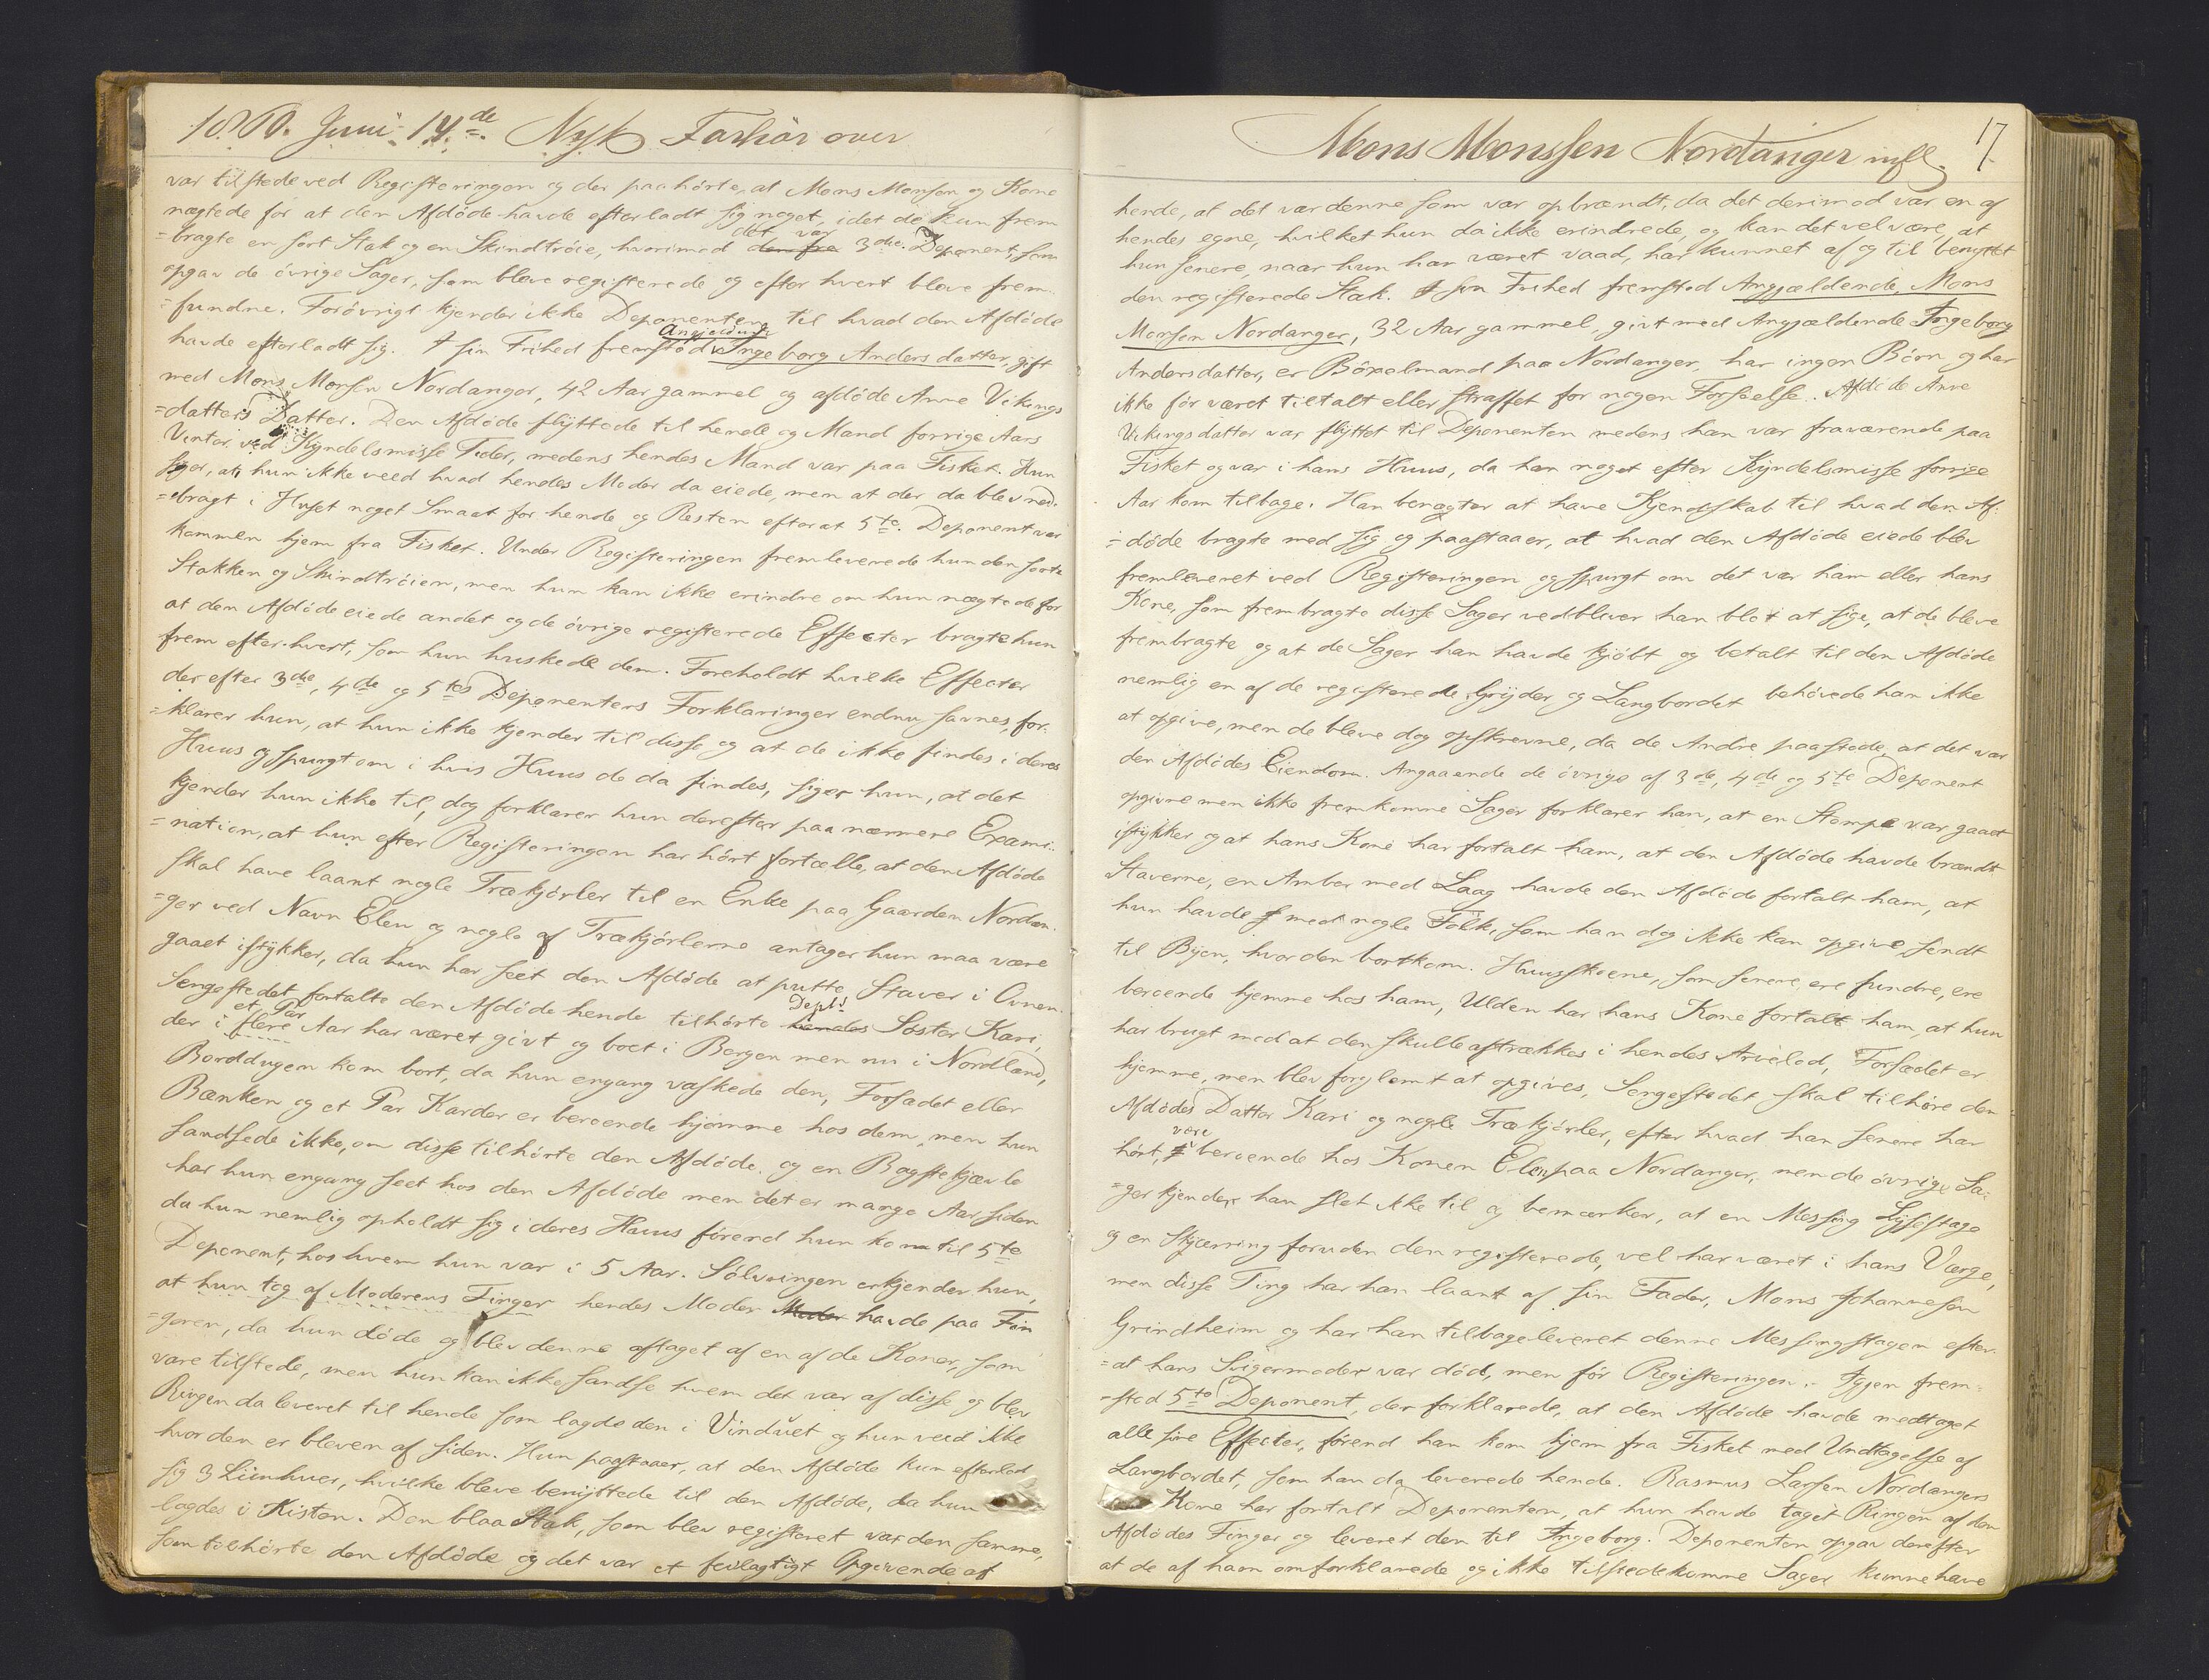 1860. Juni 14.de Nyk Forhör over
var tilstede ved Registeringen og der paahörte, at Mons Monsen og Kone
nægtede for at den Afdöde havde efterladt sig noget, idet de kun frem
=bragte en sort Stak og en Skindtröie, hvorimod det var 3die Deponent, som
opgav de övrige Sager, som bleve registerede og efter hvert bleve frem-
=fundne. Forövrigt kjender ikke Deponenten til hvad den Afdöde
havde efterladt sig. I sin Frihed fremstod Angjeldende Ingeborg Andersdatter, gift
med Mons Monsen Nordanger, 42 Aar gammel og afdöde Anne Vikings
=datters Datter. Den Afdöde flyttede til hende og Mand forrige Aars
Vinter ved Kyndelsmisse Tider, medens hendes Mand var paa Fisket. Hun
siger, at hun ikke veed hvad hendes Moder da eiede, men at der da blev ned-
=bragt i Huset noget Smaat for hende og Resten efterat 5te Deponent var
kommen hjem fra Fisket. Under Registeringen fremleverede hun den sorte
Stakken og Skindtröien, men hun kan ikke erindre om hun nægtede for
at den Afdöde eiede andet og de övrige registerede Effecter bragte hun
frem efterhvert, som hun huskede dem. Foreholdt hvilke Effecter
der efter 3die, 4de og 5tes Deponenters Forklaringer endnu savnes, for-
=klarer hun, at hun ikke kjender til disse og at de ikke findes i deres
Huus og spurgt om i hvis Huus de da findes, siger hun, at det
kjender hun ikke til, dog forklarer hun derefter paa nærmere Exami-
=nation, at hun efter Registeringen har hört fortælle, at den Afdöde
skal have laant nogle Trækjörler til en Enke paa Gaarden Nordan-
=ger ved Navn Elen og nogle af Trækjörlerne antager hun maa være
gaaet istykker, da hun har seet den Afdöde at putte Staver i Ovnen.
Sengestedet fortalte den Afdöde hende tilhörte Depts Söster Kari,
der i et Par Aar har været givt og boet i Bergen men nu i Nordland,
Borddugen kom bort, da hun engang vaskede den, Forsædet eller
Bænken og et Par Karder er beroende hjemme hos dem, men hun
sandsede ikke, om disse tilhörte den Afdöde og en Bagstekjævle
har hun engang seet hos den Afdöde men det er mange Aar siden
da hun nemlig opholdt sig i deres Huus förend hun kom til 5te
Deponent, hos hvem hun var i 5 Aar. Sölvringen erkjender hun,
at hun tog af Moderens Finger hendes Moder havde paa Fin
=geren, da hun döde og blev denne aftaget af en af de Koner, som
vare tilstede, men hun kan ikke sandse hvem det var af disse og blev
Ringen da leveret til hende som lagde den i Vinduet og hun veed ikke
hvor den er bleven af siden. Hun paastaaer, at den Afdöde kun efterlod
sig 3 Liinhuer, hvilke bleve benyttede til den Afdöde, da hun
lagdes i Kisten. Den blaa Stak, som blev registeret var den samme,
som tilhörte den Afdöde og det var et feilagtigt Opgivende af
Mons Monssen Nordanger mfl. 17
hende, at det var denne som var opbrændt, da det derimod var en af
hendes egne, hvilket hun da ikke erindrede, og kan det vel være, at
hun senere, naar hun har været vaad, har kunnet af og til benyttet
den registerede Stak. I sin Frihed fremstod Angjældende, Mons
Monsen Nordanger, 32 Aar gammel, givt med Angjældende Ingeborg
Andersdatter, er Böxelmand paa Nordanger, har ingen Börn og har
ikke för været tiltalt eller straffet for nogen Forseelse. Afdöde Anne
Vikingsdatter var flyttet til Deponenten medens han var fraværende paa
Fisket og var i hans Huus, da han noget efter Kyndelsmisse forrige
Aar kom tilbage. Han benægter at have Kjendskab til hvad den Af-
=döde bragte med sig og paastaaer, at hvad den Afdöde eiede blev
fremleveret ved Registeringen og spurgt om det var ham eller hans
Kone, som frembragte disse Sager vedbliver han blot at sige, at de bleve
frembragte og at de Sager han havde kjöbt og betalt til den Afdöde
nemlig en af de registerede Gryder og Langbordet behövede han ikke
at opgive, men de bleve dog opskrevne, da de Andre paastode, at det var
den Afdödes Eiendom. Angaaende de övrige af 3de, 4de og 5te Deponent
opgivne men ikke fremkomne Sager forklarer han, at en Stempe var gaaet
istykker og at hans Kone har fortalt ham, at den Afdöde havde brændt
Staverne, en Amber med Laag havde den Afdöde fortalt ham, at
hun havde med nogle Folk, som han dog ikke kan opgive, sendt
til Byen, hvor den bortkom. Huusskoene, som senere ere fundne, ere
beroende hjemme hos ham, Ulden har hans Kone fortalt ham, at hun
har brugt mod at den skulle aftrækkes i hendes Arvelod, Forsædet er
hjemme, men blev forglemt at opgives, Sengestedet skal tilhöre den
Afdödes Datter Kari og nogle Trækjörler, efter hvad han senere har
hört, være beroende hos Konen Elen paa Nordanger, men de övrige Sa-
=ger kjender han slet ikke til og bemærker, at en Messing Lysestage
og en Skjærring foruden den registerede, vel har været i hans Værge,
men disse Ting har han laant af sin Fader, Mons Johannesen
Grindheim og har han tilbageleveret denne Messingstagen efter-
=at hans Svigermoder var död, men för Registeringen. Igjen frem-
=stod 5te Deponent, der forklarede, at den Afdöde havde medtaget
alle sine Effecter, förend han kom hjem fra Fisket med Undtagelse af
Langbordet, som han da leverede hende. Rasmus Larsen Nordangers
Kone har fortalt Deponenten, at hun havde taget Ringen af den
Afdödes Finger og leveret den til Ingeborg. Deponenten opgav derefter
at de af ham omforklarede og ikke tilstedekomne Sager kunne have